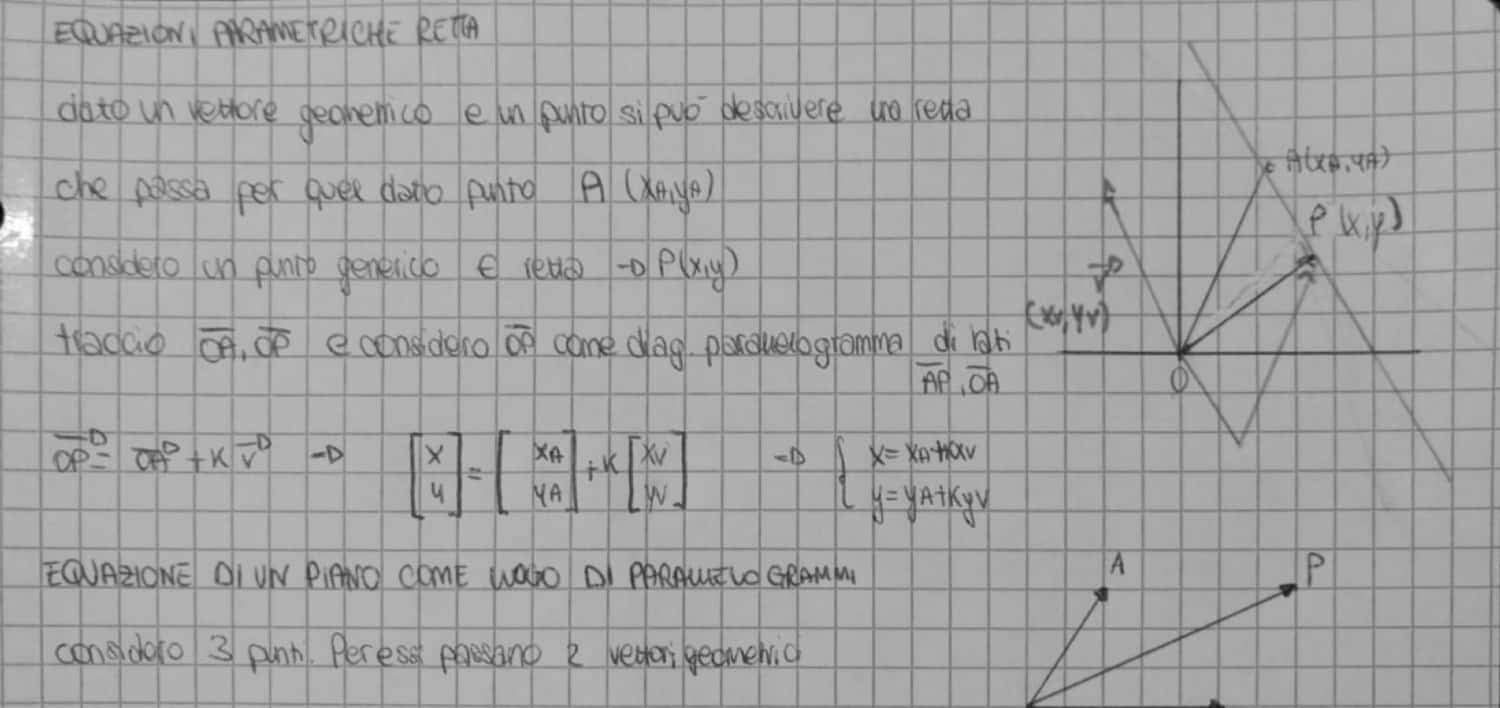 EQUAZIONI PARAMETRICHE RETTA
dato un vettore geometrico e un punto si può descrivere una retta
che passa per quel dato punto A (xA,yA)
considero un punto generico ∈ retta → P(x,y)
traccio OA, OP e considero OP come diag. parallelogramma di lati
AP, OA
OP = OA + K v → [x y] = [xA yA] + K [xv yv] → { x = xA+Kxv
y = yA+Kyv
EQUAZIONE DI UN PIANO COME LUOGO DI PARALLELOGRAMMI
considero 3 punti. Per essi passano 2 vettori geometrici
A(xA,yA)
P (x,y)
v
(xv,yv)
O
A
P